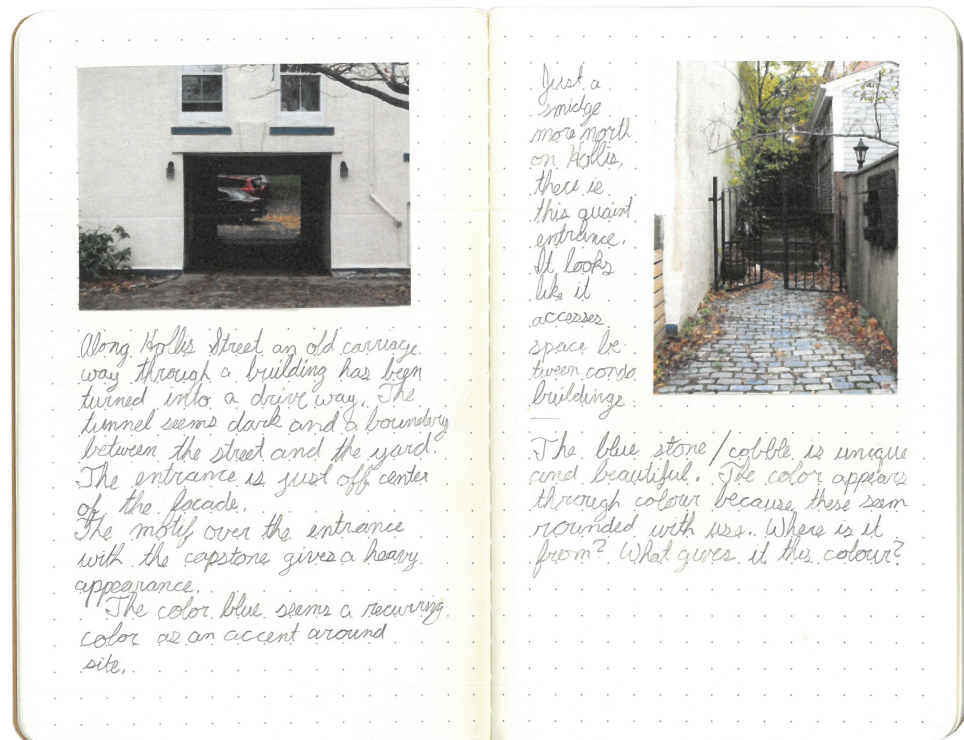 Along Hollis Street an old carriage
way through a building has been
turned into a driveway. The
tunnel seems dark and a boundary
between the street and the yard.
The entrance is just off center
of the facade.
The motif over the entrance
with the capstone gives a heavy
appearance.
The color blue seems a recurring
color as an accent around
site.
Just a
smidge
more north
on Hollis,
there is
this quaint
entrance.
It looks
like it
accesses
space be-
tween condo
buildings.
The blue stone/cobble is unique
and beautiful. The color appears
through colour because these seem
rounded with use. Where is it
from? What gives it this colour?